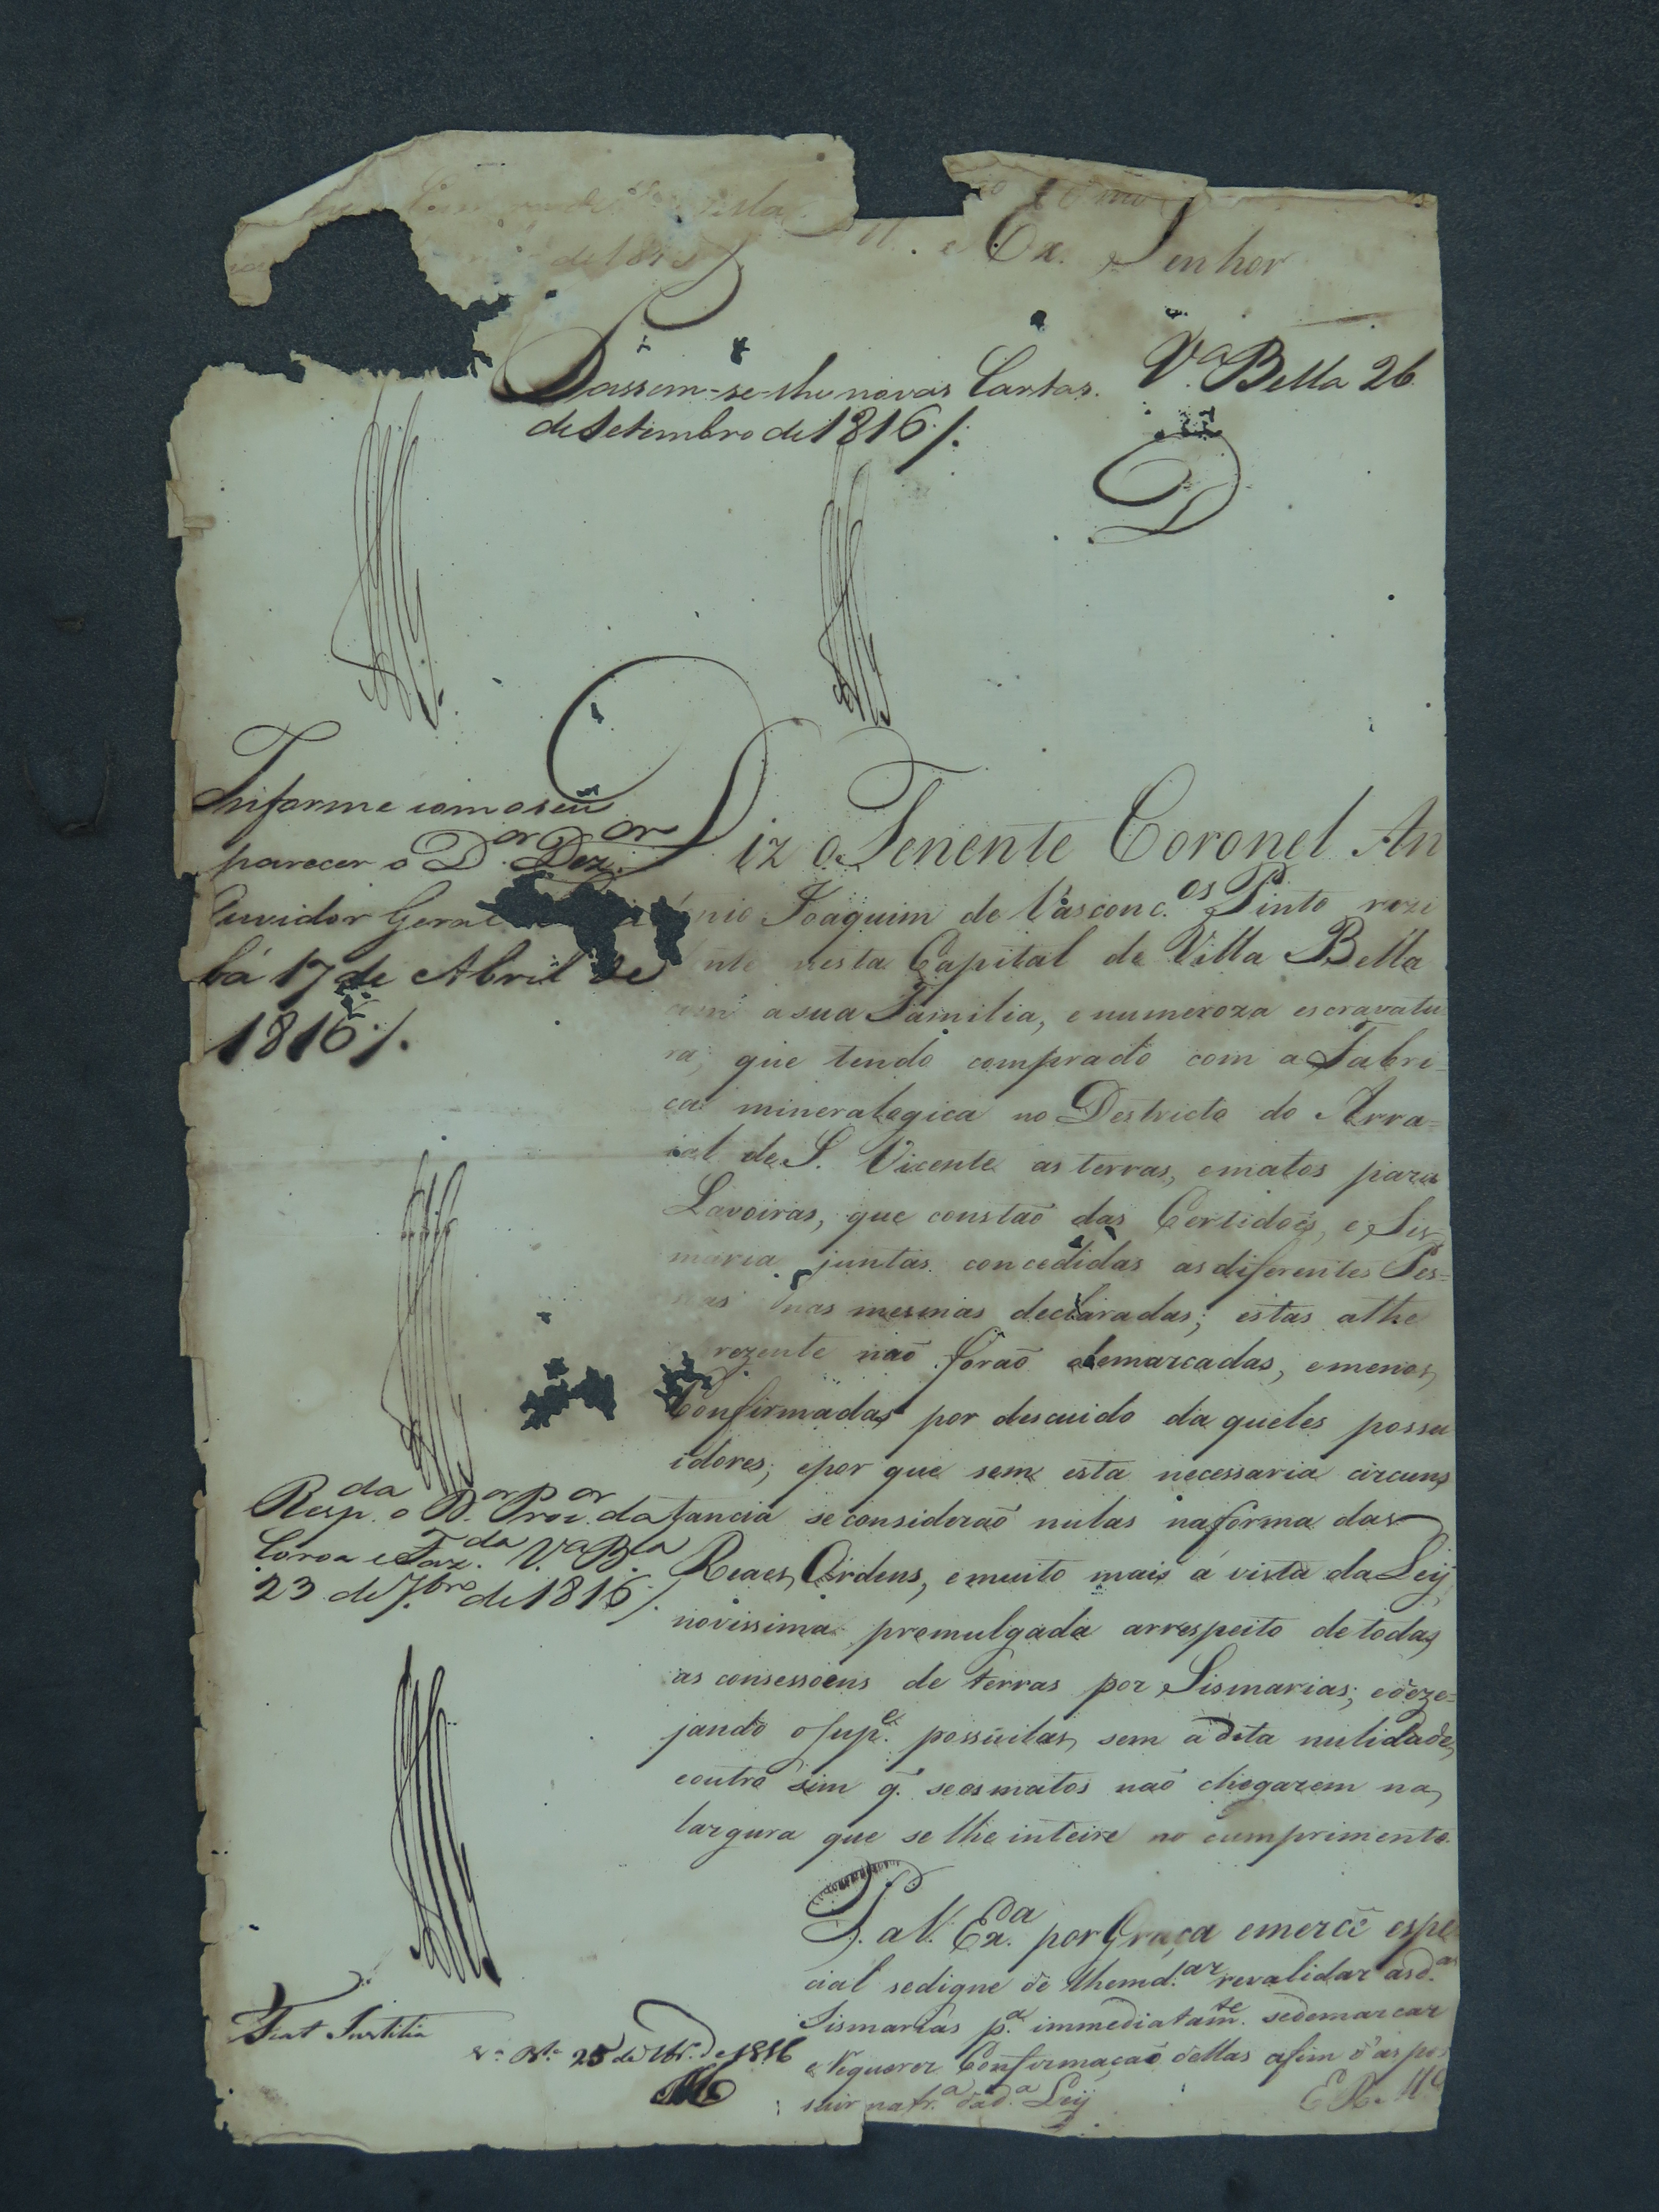 de 181
Ex. Senhor
Passem-se-lhe novas Cartas. V.ª Bella 26
de Setembro de 1816 /.
Informe com o seu
parecer o D.or Dez.or
Ouvidor Geral
bá 17 de Abril de
1816 /.
Diz o Tenente Coronel An
nio Joaquim de Vasconc.os Pinto rezi
nte nesta Capital de Villa Bella
com a sua Familia, e numeroza escravatu
ra, que tendo comprado com a Fabri=
ca mineralogica no Destricto do Arra=
ial de S. Vicente as terras, e matos para
Lavoiras, que constaõ das Certidoẽs, e Sis=
maria juntas concedidas as diferentes Pes=
as nas mesmas declaradas; estas athe
rezente naõ foraõ demarcadas, e menos
Confirmadas por descuido daqueles possu
idores; e por que sem esta necessaria circuns
tancia se consideraõ nulas na forma das
Reaes Ordens, e muito mais á vista da Ley
novissima promulgada arrespeito de todas
as consessoens de terras por Sismarias; e deze=
jando o Sup.e possuilas sem a dita nulidade,
e outro sim q. se os matos naõ chegarem na
largura que se lhe inteire no cumprimento.
Resp.da o D.or Proc.or da
Coroa e Faz.da V.ª B.ª
23 de 7.bro de 1816 /.
P. a V. Ex.ª por Graça e merce espe
cial se digne de lhe md.ar revalidar as d.as
Sismarias p.ª immediatam.te se demarcar
e requerer Confirmaçaõ dellas afim d'as pos
suir na fr.ª da d.ª Ley
E R. M.ce
Fiat Justitia
V.ª B.ª 25 de 7br.º de 1816